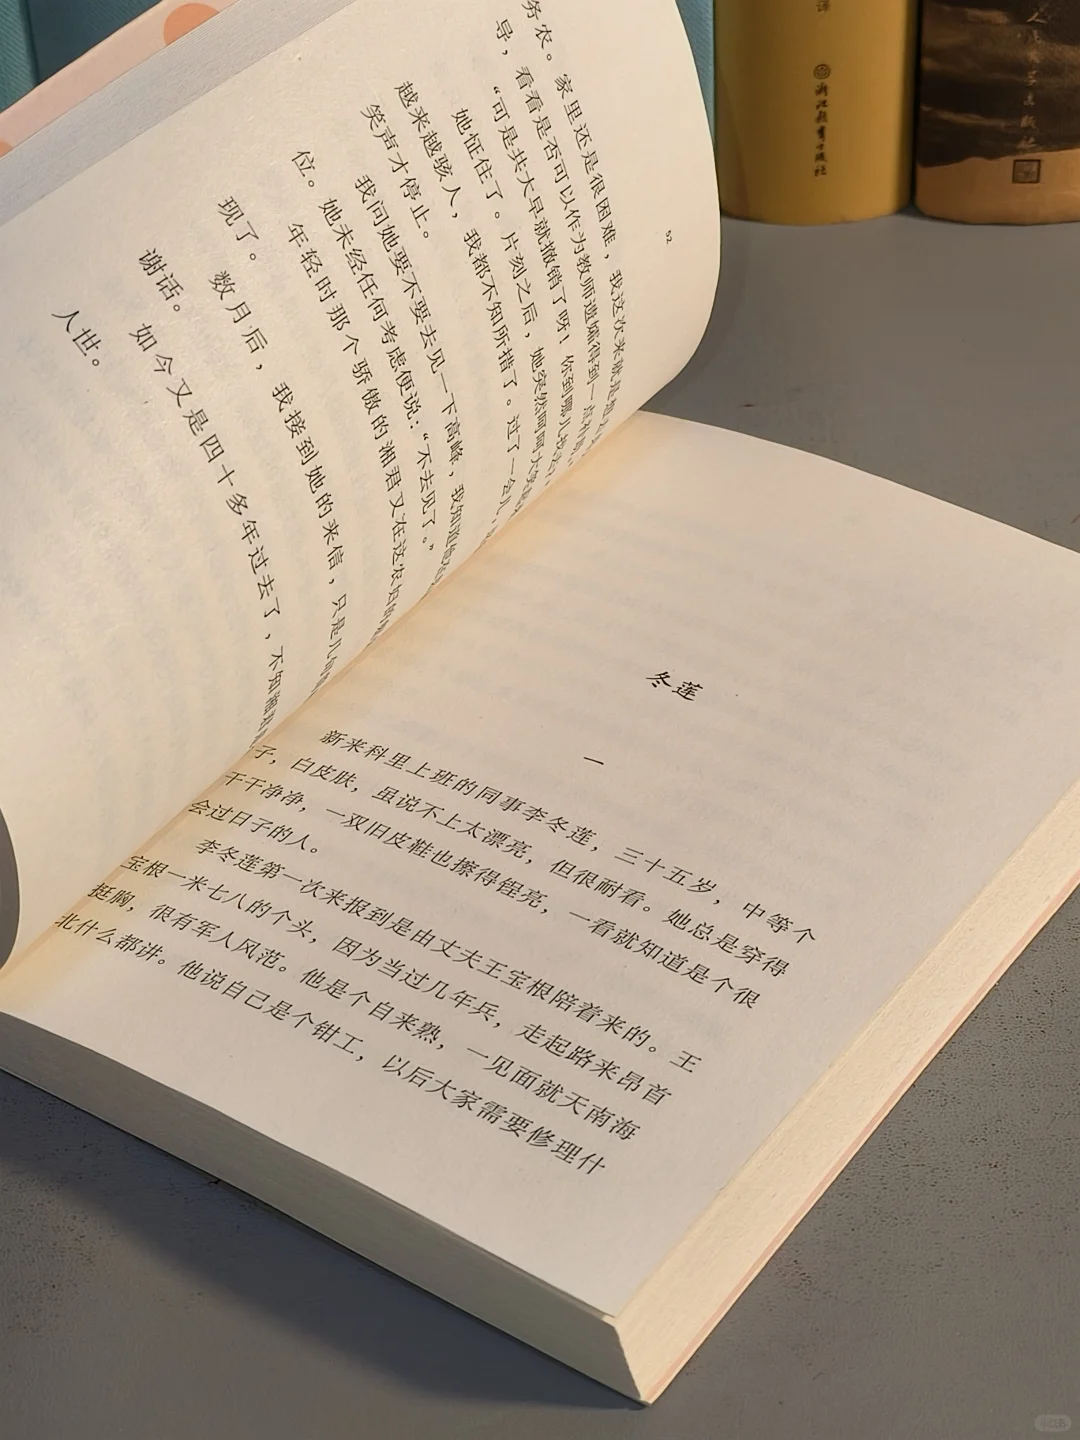 务农。家里还是很困难，我这次来就是想
导，看看是否可以作为教师遗孀得到一点补
“可是共大早就撤销了呀！你到哪儿
她怔住了。片刻之后，她突然呵呵大笑
越来越骇人，我都不知所措了。过了一会儿，
笑声才停止。
我问她要不要去见一下高峰，我知道他
位。她未经任何考虑便说：“不去见了。”
年轻时那个骄傲的湘君又在这农妇的
现了。
数月后，我接到她的来信，只是几句
谢话。
如今又是四十多年过去了，不知湘君
人世。
52
冬莲
一
新来科里上班的同事李冬莲，三十五岁，中等个
子，白皮肤，虽说不上太漂亮，但很耐看。她总是穿得
干干净净，一双旧皮鞋也擦得锃亮，一看就知道是个很
会过日子的人。
李冬莲第一次来报到是由丈夫王宝根陪着来的。王
宝根一米七八的个头，因为当过几年兵，走起路来昂首
挺胸，很有军人风范。他是个自来熟，一见面就天南海
北什么都讲。他说自己是个钳工，以后大家需要修理什
译
浙江教育出版社